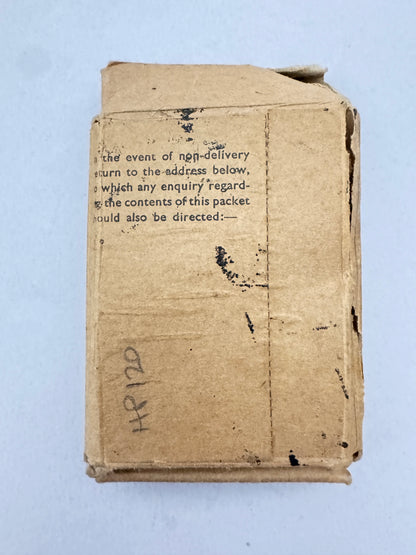 n the event of non-delivery
eturn to the address below,
o which any enquiry regard-
g the contents of this packet
hould also be directed:—
HP120